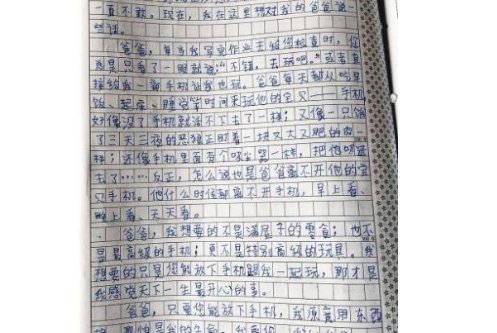 一直不敢。现在，我在这里想对我的爸爸说一
些话。
爸爸，每当我写完作业天给您检查时，您
总是只看了一眼就说："不错，去玩吧。"或者直
接给我一部手机让我也玩。爸爸每天都从吃早
饭、起床、睡觉等时间来玩他的宝贝——手机，
好像没了手机就活不下去了一样；又像一只饿
了三天三夜的恶狼正盯着一块又大又肥的肉一
样；还像手机里面有个吸尘器一样，把他吸进
去了……反正，怎么说也是爸爸离不开他的宝
贝手机。他什么时候都离不开手机，早上看、
晚上看、天天看。
爸爸，我想要的不是满屋子的零食；也不
是最高级的手机；更不是特别高级的玩具。我
想要的只是您能放下手机跟我一起玩，那才是
我感觉天下一生最开心的事。
爸爸，只要您能放下手机，我愿意用东西